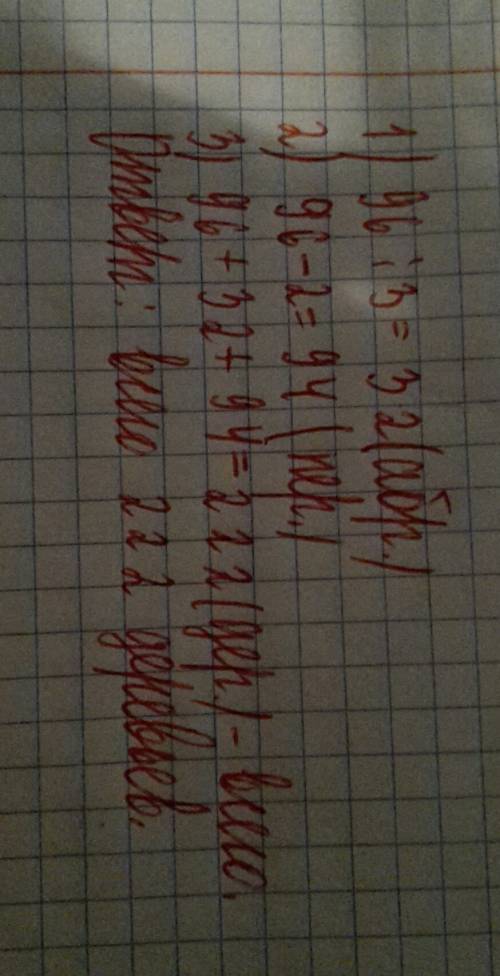 1) 96 : 3 = 32 (абр.)
2) 96 - 2 = 94 (пер.)
3) 96 + 32 + 94 = 222 (дер.) - всего.
Ответ: всего 222 деревьев.